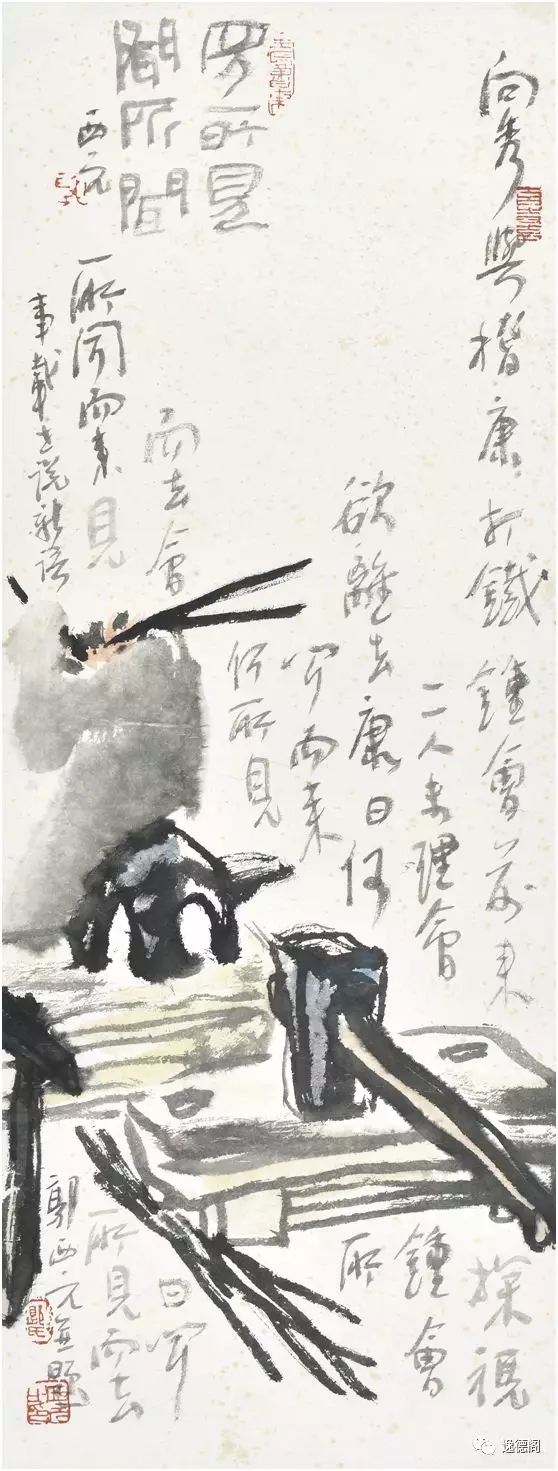 向秀與稽康打鐵鍾會前來
探視
二人未理會
鍾會
欲離去康曰何
所
聞而來
何所見
而去會
曰聞
所聞而來見
所見而去
事載世説新語
郭西元並題
見所見
聞所聞
西元
逸德阁